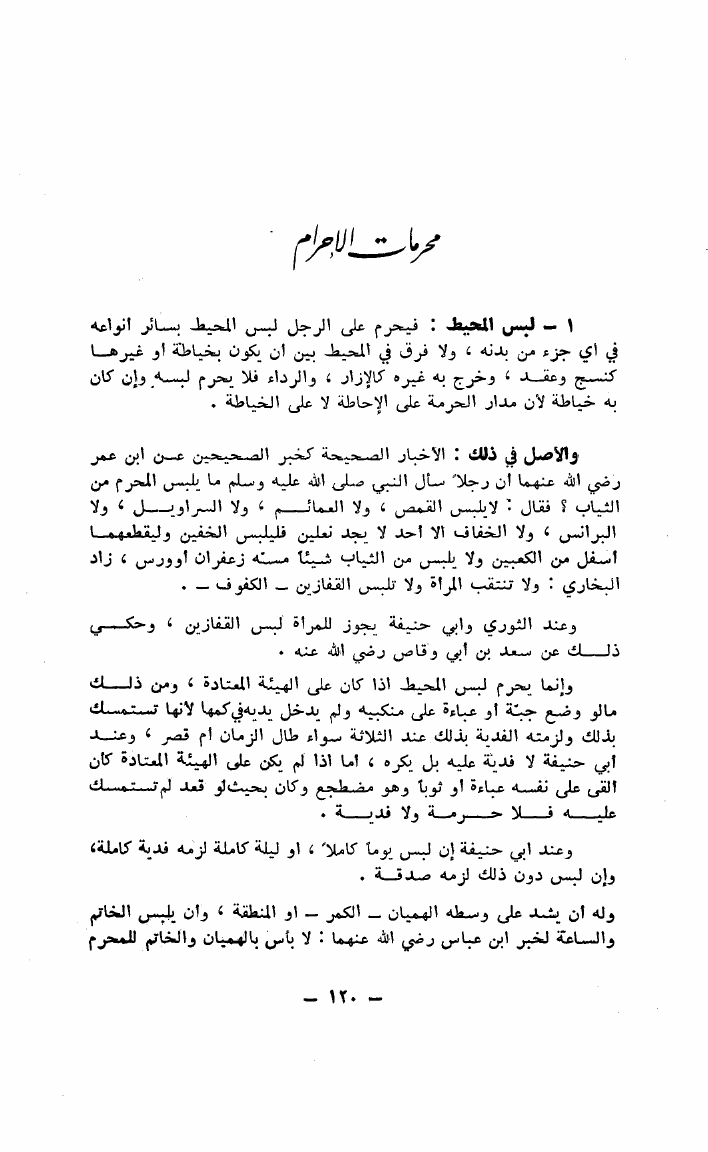 محرمات الإحرام
١ – لبس المحيط : فيحرم على الرجل لبس المحيط بسائر أنواعه
في أي جزء من بدنه ، ولا فرق في المحيط بين أن يكون بخياطة أو غيرهـا
كنسج وعقـد ، وخرج به غيره كالإزار ، والرداء فلا يحرم لبسه وإن كان
به خياطة لأن مدار الحرمة على الإحاطة لا على الخياطة .
والأصل في ذلك : الأخبار الصحيحة كخبر الصحيحين عـن ابن عمر
رضي الله عنهما أن رجلاً سأل النبي صلى الله عليه وسلم ما يلبس المحرم من
الثياب ؟ فقال : لايلبس القمص ، ولا العمائـم ، ولا السراويـل ، ولا
البرانس ، ولا الخفاف الا أحد لا يجد نعلين فليلبس الخفين وليقطعهمـا
أسفل من الكعبين ولا يلبس من الثياب شيئاً مسـّه زعفران أوورس ، زاد
البخاري : ولا تنتقب المرأة ولا تلبس القفازين – الكفوف – .
وعند الثوري وابي حنيفة يجوز للمرأة لبس القفازين ، وحكـي
ذلـك عن سعد بن أبي وقاص رضي الله عنه .
وإنما يحرم لبس المحيط اذا كان على الهيئة المعتادة ، ومن ذلـك
مالو وضع جبـّة أو عباءة على منكبيه ولم يدخل يديه في كمها لأنها تستمسك
بذلك ولزمته الفدية بذلك عند الثلاثة سواء طال الزمان أم قصر ، وعنـد
أبي حنيفة لا فدية عليه بل يكره ، أما اذا لم يكن على الهيئة المعتادة كأن
ألقى على نفسه عباءة أو ثوباً وهو مضطجع وكان بحيث لو قعد لم تستمسك
عليـه فـلا حـرمـة ولا فديـة .
وعند ابي حنيفة إن لبس يوماً كاملاً ، او ليلة كاملة لزمه فدية كاملة،
وإن لبس دون ذلك لزمه صدقـة .
وله أن يشد على وسطه الهميان – الكمر – او المنطقة ، وأن يلبس الخاتم
والساعة لخبر ابن عباس رضي الله عنهما : لا بأس بالهميان والخاتم للمحرم
– ١٢٠ –